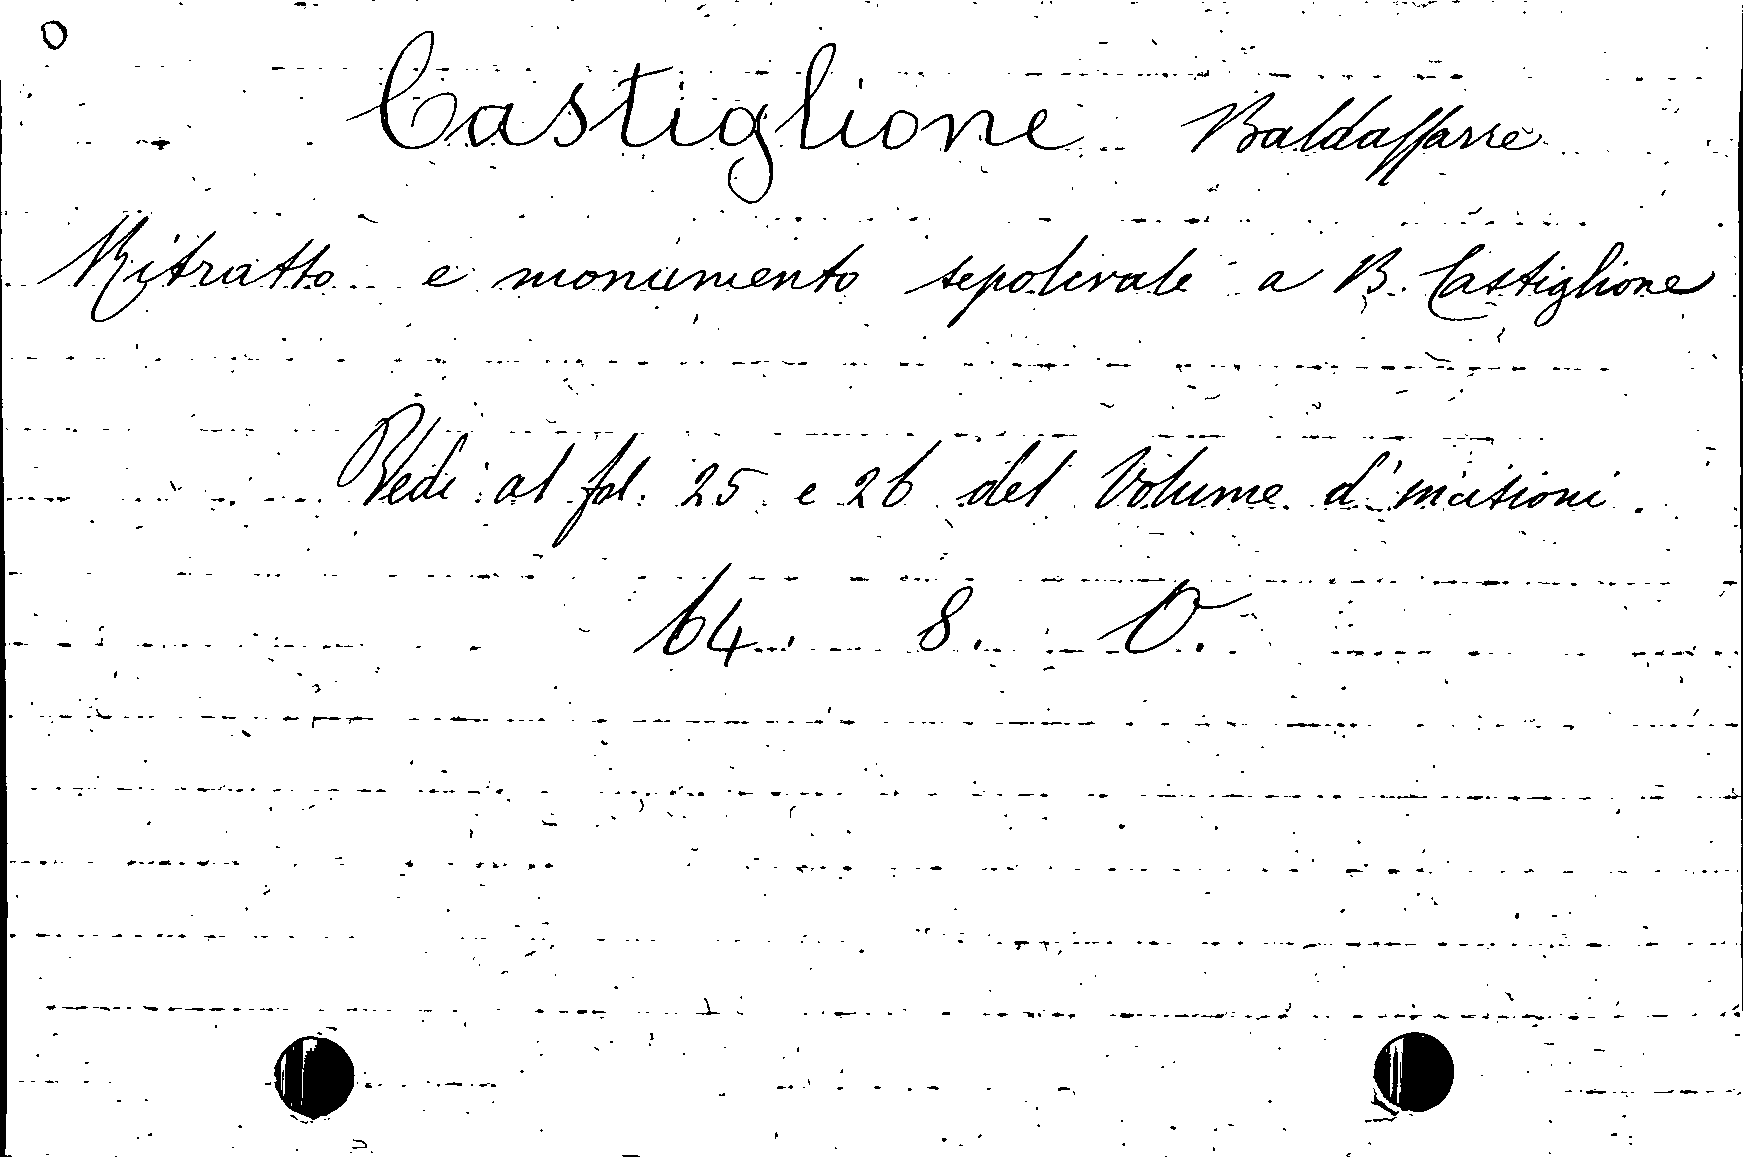 O
Castiglione Baldassarre
Ritratto e monumento sepolcrale a B. Castiglione
Vedi al fol. 25 e 26 del Volume d'incisioni.
64. 8. O.